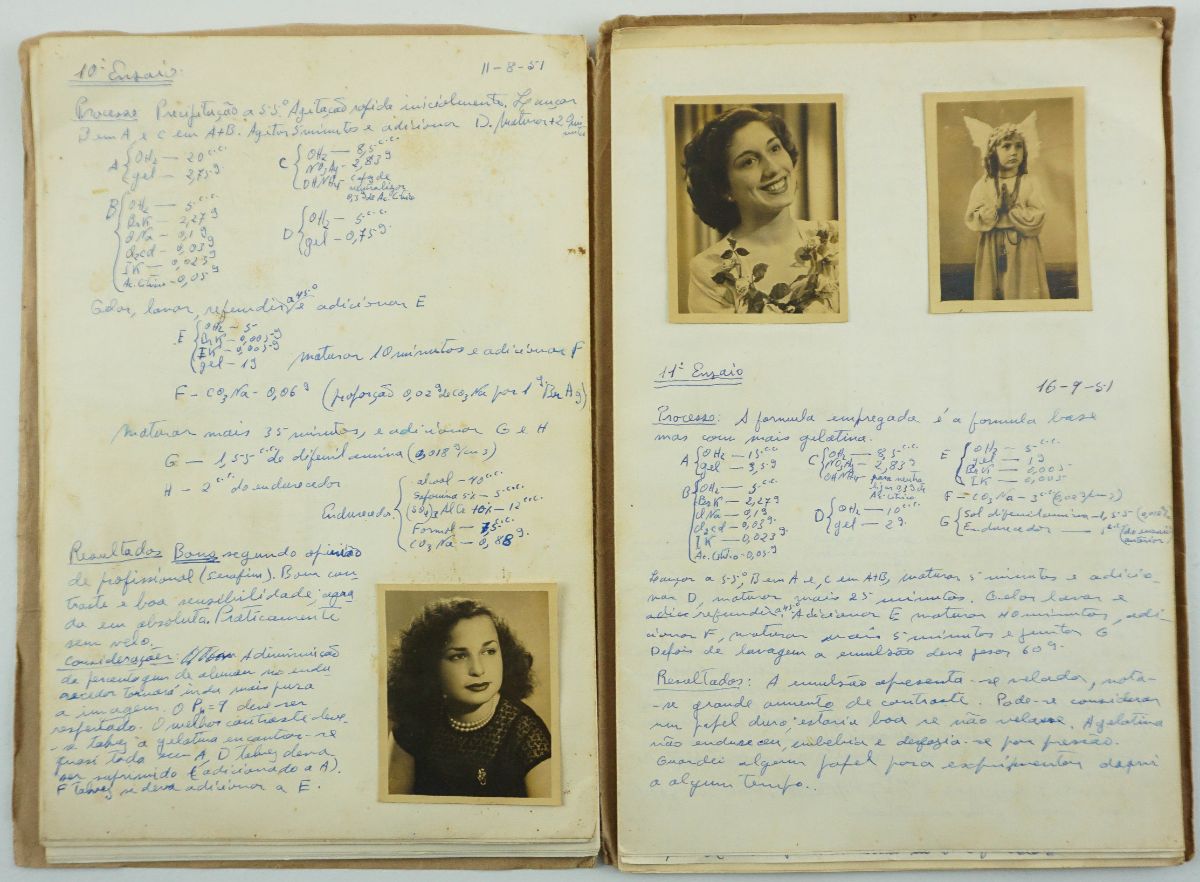 10º Ensaio
11-8-51
Processo Precipitação a 55º Agitação rápida inicialmente. Lançar
B em A e C em A+B. Agitar 5 minutos e adicionar D. Maturar +2 minutos
A { OH2 — 20 c.c.
gel — 2,75 g
B { OH2 — 5 c.c.
BrK — 2,27 g
ClNa — 0,1 g
Cl2Cd — 0,03 g
IK — 0,023 g
Ac. Citrico — 0,05 g
C { OH2 — 8,5 c.c.
NO3Ag — 2,83 g
OHNH4 — capaz de
neutralizar
0,39 de Ac. Citrico
D { OH2 — 5 c.c.
gel — 0,75 g
Gelar, lavar, refundir a 45º e adicionar E
E { OH2 — 5
BrK — 0,005 g
IK — 0,005 g
gel — 1 g
maturar 10 minutos e adicionar F
F — CO3Na — 0,06 g (proporção 0,02 g de CO3Na por 1 g BrAg)
Maturar mais 35 minutos, e adicionar G e H
G — 1,5 c.c. de difenilamina (0,018 g/cm3)
H — 2 c.c. do endurecedor
Endurecedor { alcool — 40 c.c.
Saponina 5% — 5 c.c.
(SO4)3Al2 10% — 12 c.c.
Formol — 7,5 c.c.
CO3Na — 0,88 g.
Resultados Bons segundo opinião
de profissional (Serafim). Bom con-
traste e boa sensibilidade,
da em absoluta. Praticamente
sem velo.
Considerações: A diminuição
da percentagem de alumen no endu-
recedor tornará inda mais pura
a imagem. O PH=7 deve ser
respeitado. O melhor contraste deve-
-se talvez a gelatina encontrar-se
quasi toda em A, D talvez deva
ser suprimido (adicionado a A).
F talvez se deva adicionar a E.
11º Ensaio
16-9-51
Processo: A formula empregada é a formula base
mas com mais gelatina.
A { OH2 — 15 c.c.
gel — 3,5 g
B { OH2 — 5 c.c.
BrK — 2,27 g
ClNa — 0,1 g
Cl2Cd — 0,03 g
IK — 0,023 g
Ac. Citrico — 0,05 g
C { OH2 — 8,5 c.c.
NO3Ag — 2,83 g
OHNH4 — para neutra
lizar 0,39 de
Ac. Citrico
D { OH2 — 10 c.c.
gel — 2 g.
E { OH2 — 5 c.c.
gel — 1 g
BrK — 0,005
IK — 0,005
F — CO3Na — 3 c.c. (0,02 g/cm3)
G { Sol difenilamina 1,5 c.c. (0,018
Endurecedor — 5 c.c. (do ensaio
anterior)
Lançar a 55º, B em A e, C em A+B, maturar 5 minutos e adicio-
nar D, maturar mais 25 minutos. Gelar lavar e
refundir a 45º. Adicionar E maturar 40 minutos, adi-
cionar F, maturar mais 5 minutos e juntar G
Depois de lavagem a emulsão deve pesar 60 g.
Resultados: A emulsão apresenta-se velada, nota-
-se grande aumento de contraste. Pode-se considerar
um papel duro; estaria boa se não velasse. A gelatina
não endureceu, embebia e desfazia-se por pressão.
Guardei algum papel para experimentar daqui
a algum tempo..